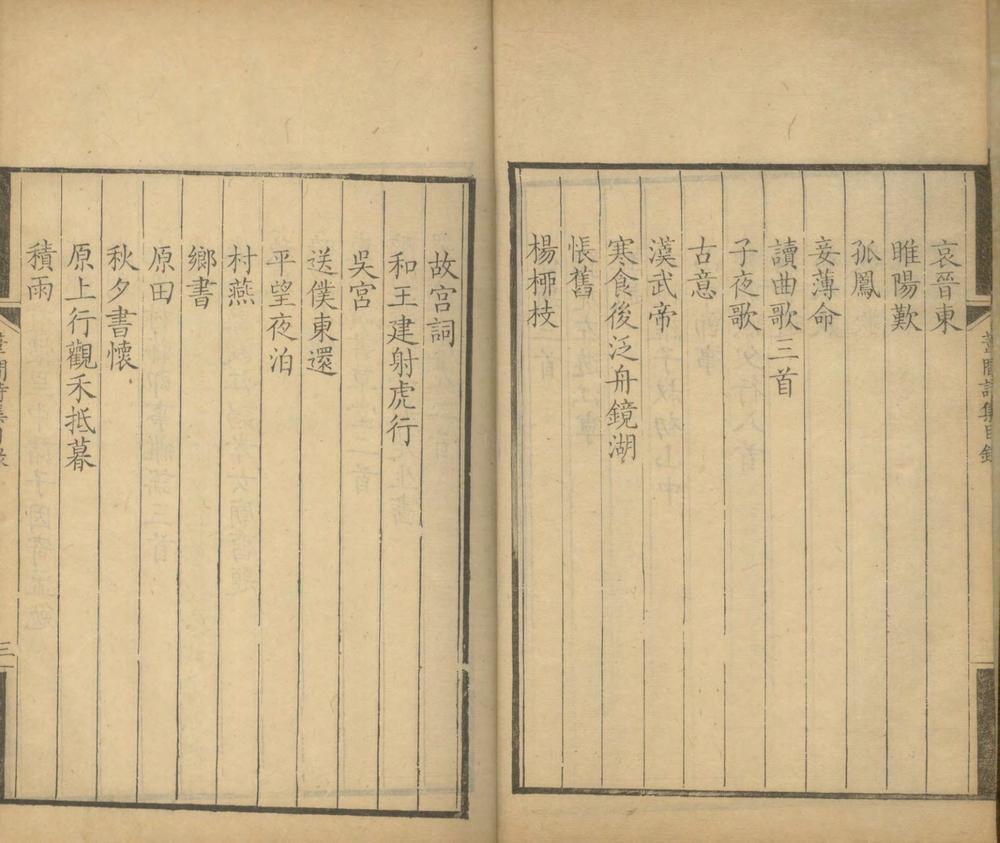 哀晉東
睢陽歎
孤鳳
妾薄命
讀曲歌三首
子夜歌
古意
漢武帝
寒食後泛舟鏡湖
悵舊
楊桺枝
故宮詞
和王建射虎行
吳宮
送僕東還
平望夜泊
村燕
鄉書
原田
秋夕書懷
原上行觀禾抵暮
積雨
三